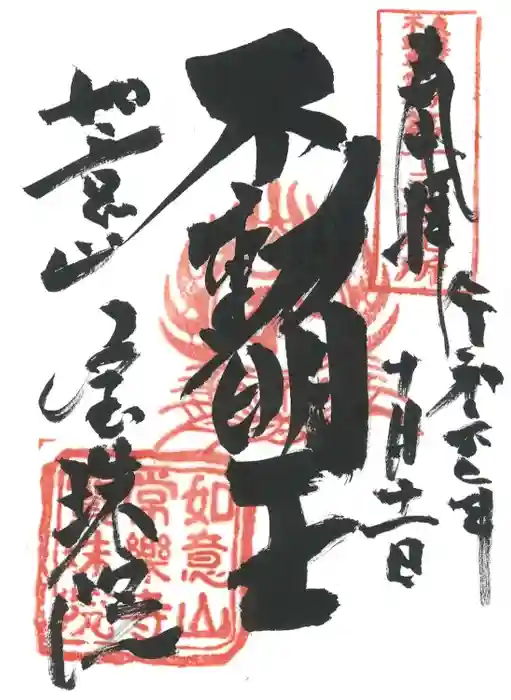 奉拝
令和六年
十月十一日
不動明王
如意山
宝珠院
如意山
常樂寺
寶珠院